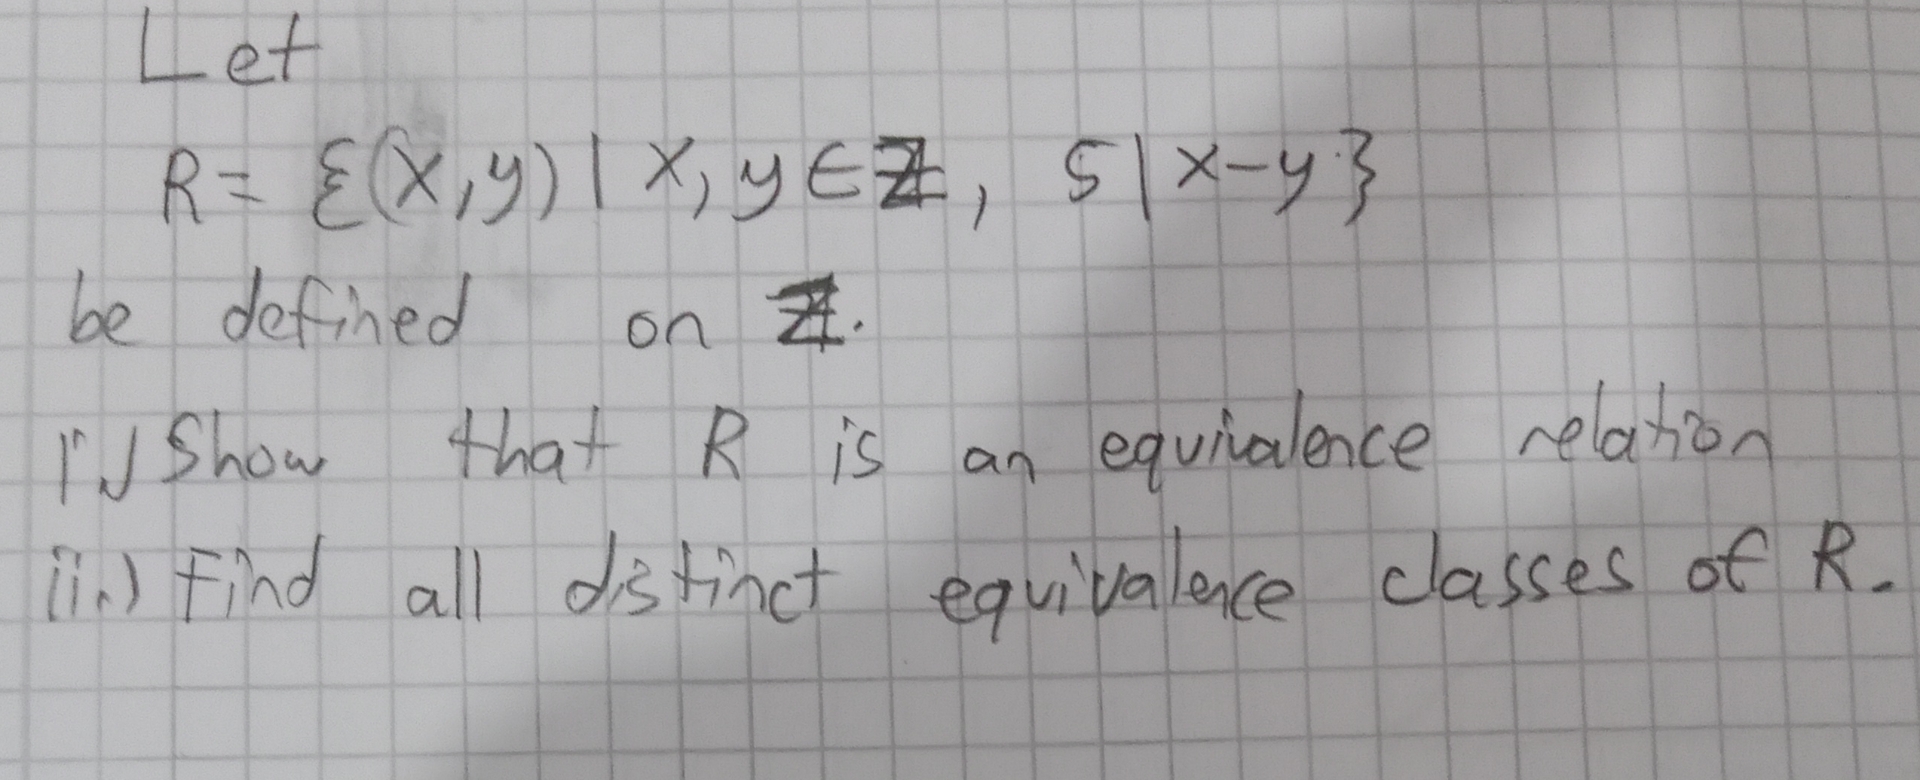 Let
R = {(x,y) | x, y ∈ ℤ, 5 | x-y}
be defined on ℤ.
i.) Show that R is an equivalence relation
ii.) Find all distinct equivalence classes of R.